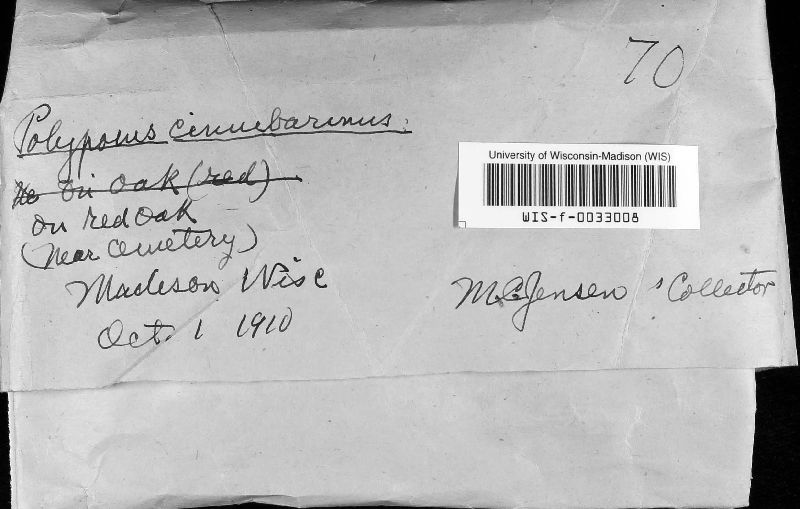 70
Polyporus cinnebarinus.
on oak (red)
on red oak
(Near Cemetery)
Madison Wisc
Oct. 1 1910
University of Wisconsin-Madison (WIS)
WIS-f-0033008
M.C. Jensen, Collector